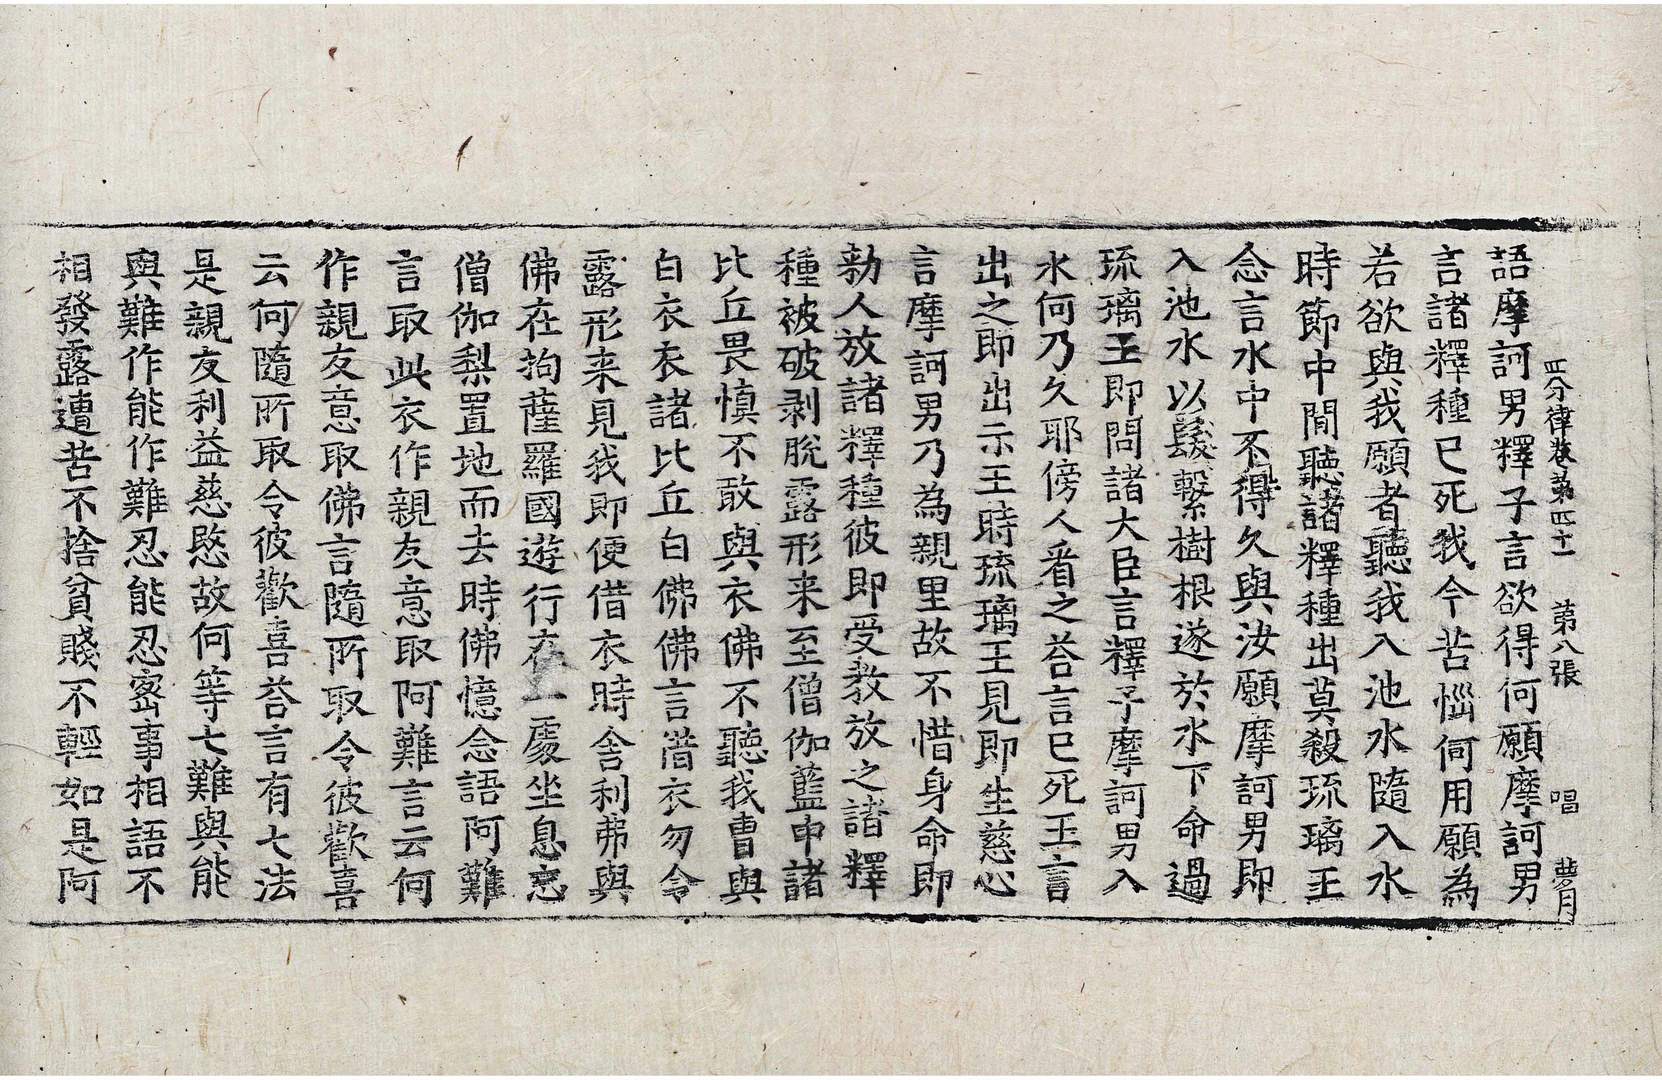 四分律卷第四十一 第八張 唱 夢月
語摩訶男釋子言欲得何願摩訶男
言諸釋種已死我今苦惱何用願為
若欲與我願者聽我入池水隨入水
時節中間聽諸釋種出莫殺琉璃王
念言水中不得久與汝願摩訶男即
入池水以髮繫樹根遂於水下命過
琉璃王即問諸大臣言釋子摩訶男入
水何乃久耶傍人看之荅言已死王言
出之即出示王時琉璃王見即生慈心
言摩訶男乃為親里故不惜身命即
勑人放諸釋種彼即受教放之諸釋
種被破剥脫露形来至僧伽藍中諸
比丘畏慎不敢與衣佛不聽我曹與
白衣衣諸比丘白佛佛言借衣勿令
露形来見我即便借衣時舍利弗與
佛在拘薩羅國遊行在一處坐息忘
僧伽梨置地而去時佛憶念語阿難
言取此衣作親友意取阿難言云何
作親友意取佛言隨所取令彼歡喜
云何隨所取令彼歡喜荅言有七法
是親友利益慈愍故何等七難與能
與難作能作難忍能忍密事相語不
相發露遭苦不捨貧賤不輕如是阿